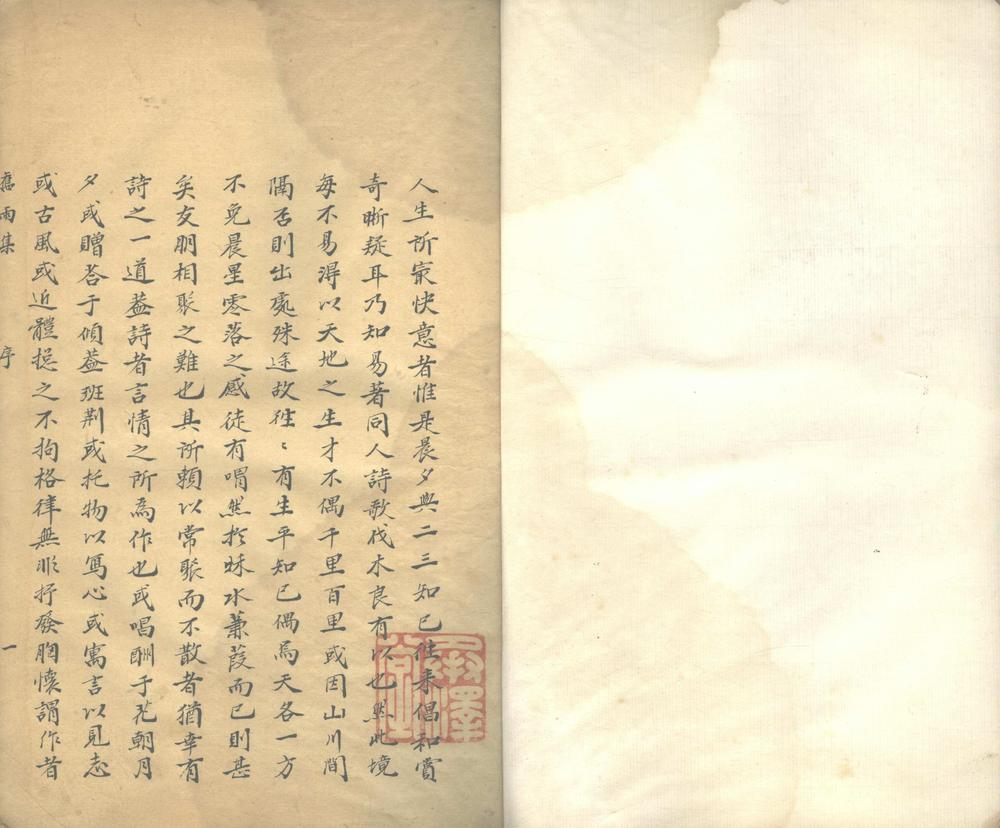 人生所冣快意者惟是晨夕與二三知已往來倡和賞
奇晰疑耳乃知易著同人詩歌伐木良有以也然此境
每不易淂以天地之生才不偶千里百里或因山川間
隔否則出處殊途故往〻有生平知已偶為天各一方
不免晨星零落之感徒有喟然於秌水蒹葭而已則甚
矣友朋相聚之難也其所頼以常聚而不散者猶幸有
詩之一道葢詩者言情之所為作也或唱酬于花朝月
夕或贈荅于傾葢班荆或托物以寫心或寓言以見志
或古風或近體揔之不拘格律無非抒發胸懷謂作者
舊雨集 序 一